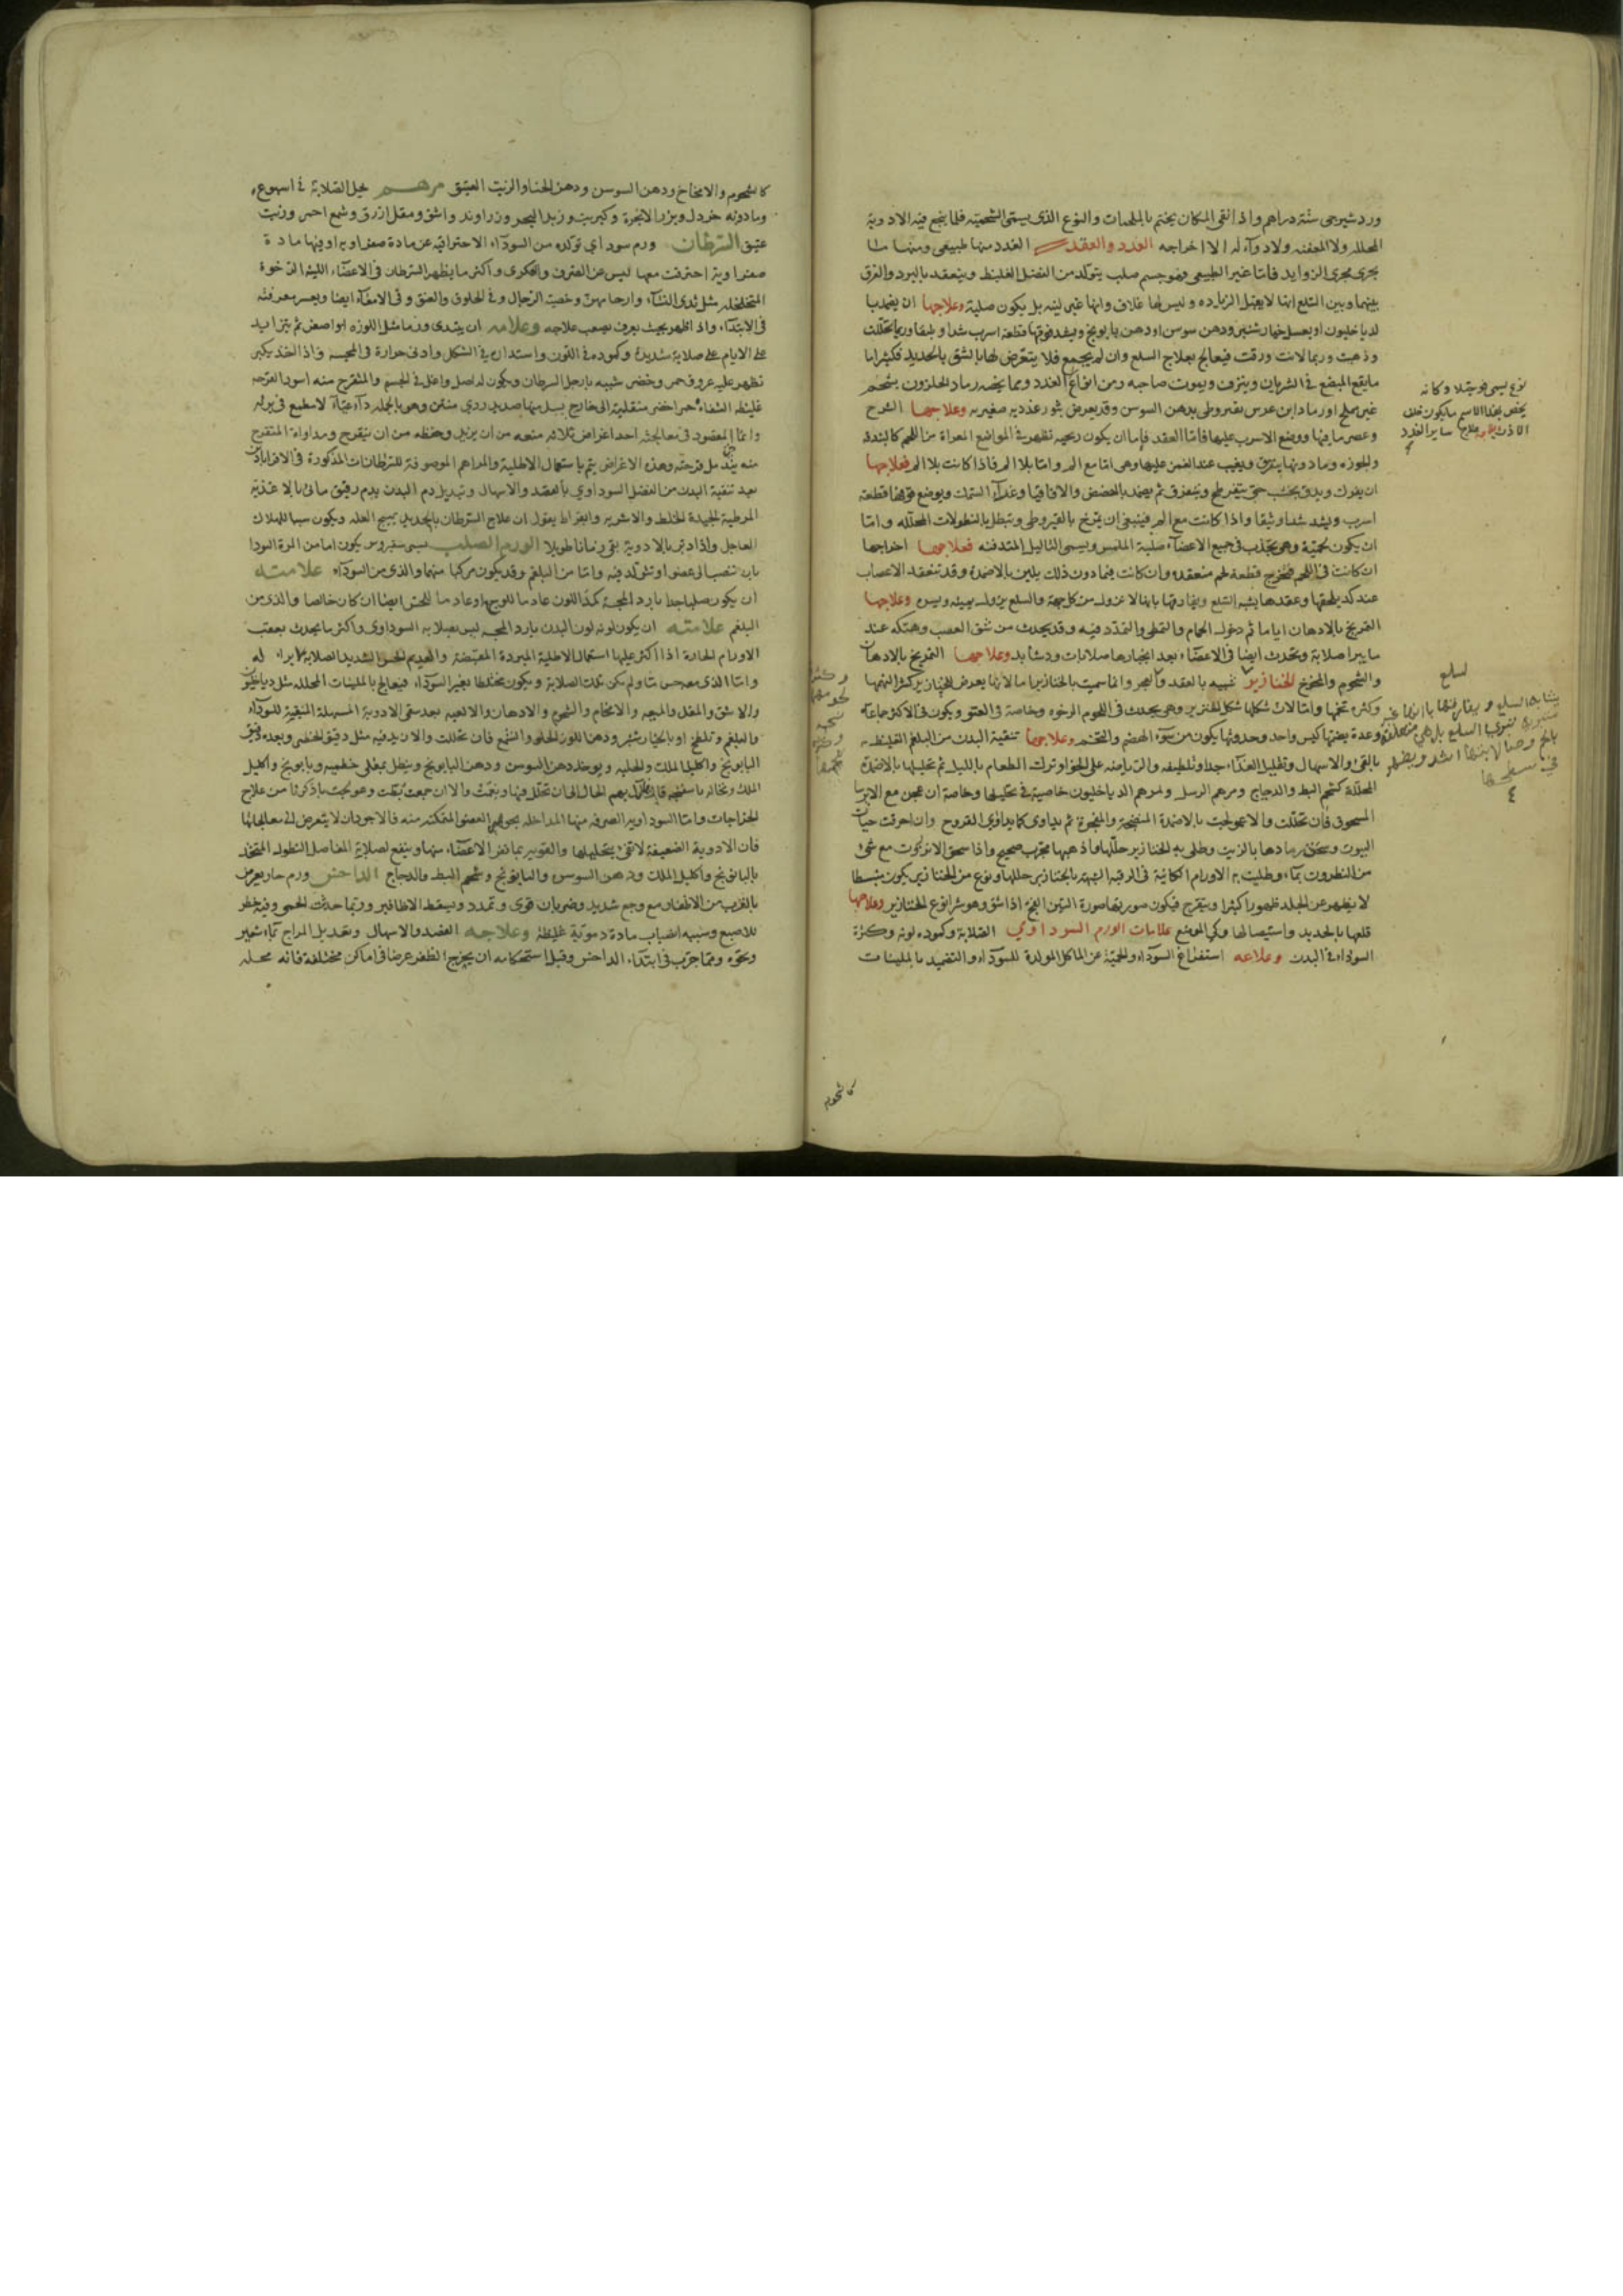 وردشيرجى ستة دراهم واذا نقى المكان يختم بالملحمات والنوع الذى يسمى الشحميه فلما ينجع فيه الادوية
المحلله ولا المعفنه ولا دوآء له الا اخراجه الغدد والعقد الغدد منها طبيعى ومنها ما
يجرى مجرى الزوايد فاما غير الطبيعى فهو جسم صلب يتولد من الفضل الغليظ وينعقد بالبرد والفرق
بينهما وبين السلع انها لا يقبل الزياده وليس لها غلاف وانها غير لينه بل يكون صلبة وعلاجها ان يضمد با
لدياخليون او بعسل خيار شنبر ودهن سوسن او دهن بابونج ويشد فوقها قطعة اسرب شدا وثيقا وربما تحللت
وذهبت وربما لانت ورقت فيعالج بعلاج السلع وان لم يجمع فلا يتعرض لها بالشق بالحديد فكثيرا ما
مايقع المبضع فى الشريان وينزف ويموت صاحبه ومن انواع الغدد ومما يخصه رماد الحلزون بشحم
غير مملح او رماد ابن عرس بقيروطى بدهن السوسن وقد يعرض بثور غدديه صغيره وعلاجها الشرح
وعصر ما فيها ووضع الاسرب عليها فاما العقد فاما ان يكون ريحيه تظهر فى المواضع المعراة من اللحم كالبندقه
والجوزه وما دونها يتفرق ويغيب عند الغمز عليها وهى اما مع الم واما بلا الم فاذا كانت بلا الم فعلاجها
ان يفرك ويدق بخشب حتى يتفرطح ويتفرق ثم يضمد بالحضض والاقاقيا وغرآء السمك ويوضع فوقها قطعة
اسرب ويشد شدا وثيقا واذا كانت مع الم فينبغى ان يمرخ بالقيروطى وينطل بالنطولات المحلله واما
ان يكون لحمية وهى تجذب فى جميع الاعضآء صلبة الملمس ويسمى الثاليل المتدفنه فعلاجها اخراجها
ان كانت فى اللحم فتخرج قطعة لحم منعقده وان كانت فيما دون ذلك يلين بالاضمدة وقد تنعقد الاعصاب
عند كد يلحقها وعقدها يشبه السلع ويفارقها بانها لا تزول من كل جهة والسلع يزول يمينه ويسره وعلاجها
التمريخ بالادهان اياما ثم دخول الحمام والتمطى والتمدد فيه وقد يحدث من شق العصب وهتكه عند
ما يبرا صلابة وتحدث ايضا فى الاعضآء بعد انجبارها صلابات ودشابد وعلاجها التمريخ بالادهان
والشحوم والمخوخ الخنازير شبيه بالعقد والعجر وانما سميت بالخنازير اما لانها يعرض للخنازير كثرا لنهمها
وكثرة تخمها واما لان شكلها شكل الخنزير وهى يحدث فى اللحوم الرخوه وخاصة فى العنق ويكون فى الاكثر جماعه
وعدة يضمها كيس واحد وحدوثها يكون من سوء الهضم والتخم وعلاجها تنقية البدن من البلغم الغليظ
بالقى والاسهال وتقليل الغذآء جدا وتلطيفه والرياضه على الخوا وترك الطعام بالليل ثم تحليلها بالاضمدة
المحللة كشحم البط والدجاج ومرهم الرسل ولمرهم الدياخليون خاصية فى تحليلها وخاصة ان عجن مع الايرسا
المسحوق فان تحللت والا عولجت بالاضمدة المنضجة والمفجرة ثم يداوى كما يداوى القروح وان احرقت حيات
البيوت وسحق رمادها بالزيت وطلى به الخنازير حللها واذهبها مجرب صحيح واذا سحق الانزروت مع شئ
من النطرون بمآء وطليت به الاورام الكائنة فى الرقبه الشبيهة بالخنازير حللها ونوع من الخنازير يكون منبسطا
لا يظهر عن الجلد ظهورا كثيرا ويتقرح فيكون صورتها صورة التين الفج اذا شق وهو شر انواع الخنازير وعلاجها
قلعها بالحديد واستيصالها وكى الموضع علامات الورم السوداوي الصلابة وكمودة لونه وكثرة
السوداء فى البدن وعلاجه استفراغ السودآء والحمية عن الماكل المولدة للسودآء والتضميد بالملينات
نوع يسمى فوجثلا وكانه
يخص بهذا الاسم ما يكون خلف
الاذن وعلاجها علاج ساير الغدد
لسلع
يشابه السلع ويفارقها بانها غير
كالشحوم
كالشحوم والامخاخ ودهن السوسن ودهن الحنا والزيت العتيق مرهم يحل الصلابة فى اسبوع
ومادونه خردل وبزر الانجرة وكبريت وزبد البحر وزراوند واشق ومقل ازرق وشمع احمر وزيت
عتيق السرطان ورم سوداي تولده من السودآء الاحتراقيه عن مادة صفراويه او فيها مادة
صفراوية احترقت معها ليس عن الصرف والعكرى واكثر ما يظهر السرطان فى الاعضآء اللينة الرخوة
المتخلخله مثل ثدى النسآء وارحامهن وخصيه الرجال وفى الحلوق والعنق وفى الامعآء ايضا ويعسر معرفته
فى الابتدآء واذا ظهر بحيث يعرف يصعب علاجه وعلامه ان يبتدى ورما مثل اللوزه او اصغر ثم يتزايد
على الايام على صلابة شديدة وكمودة فى اللون واستدارة فى الشكل وادنى حرارة فى المجسه فاذا اخذ يكبر
تظهر عليه عروق حمر وخضر شبيه بارجل السرطان ويكون له اصل واغل فى الجسم والمتقرح منه اسود القرحه
غليظه الشفاه حمرا خضر منقلبة الى خارج يسيل منها صديد ردي منتن وهو بالجمله دآء عيآء لا مطمع فى برئه
وانما المقصود فى معالجته احد اغراض ثلاثه منعه من ان يزيد وحفظه من ان يتقرح ومداواة المتقرح
منه يندمل قرحته وهذه الاغراض يتم باستعمال الاطلية والمراهم الموصوفة للسرطانات المذكورة فى الاقراباذين
بعد تنقية البدن من الفضل السوداوي بالفصد والاسهال وتبديل دم البدن بدم رقيق مائى بالاغذية
المرطبة الجيدة الخلط والاشربه وابقراط يقول ان علاج السرطان بالحديد يهيج العله ويكون سببا للهلاك
العاجل واذا دبر بالادوية بقى زمانا طويلا الورم الصلب يسمى سقيروس يكون اما من المرة السودا
بان تنصب الى عضو او تتولد فيه واما من البلغم وقد يكون مركبا منهما والذى من السودآء علامته
ان يكون صلبا جدا بارد المجسة كمد اللون عادما للوجع وعادما للحس ايضا ان كان خالصا والذى من
البلغم علامته ان يكون لونه لون البدن بارد المجسه ليس بصلابه السوداوى واكثر ما يحدث بعقب
الاورام الحارة اذا اكثر عليها استعمال الاطلية المبردة المقبضة والعديم الحس الشديد الصلابة لا براء له
واما الذى معه حس ما ولم يكن تلك الصلابة ويكون مختلطا بغير السودآء فيعالج بالملينات المحلله مثل دياخليون
والاشق والمقل والميعه والامخاخ والشحوم والادهان والالعبه بعد سقى الادوية المسهلة المنقية للسودآء
والبلغم وتلطخ او بالخيار شنبر ودهن اللوز الحلو والشمع فان تحللت والا زيد فيه مثل دقيق الخطمى وبعده دقيق
البابونج واكليل الملك والحلبه ويوخذ دهن السوسن ودهن البابونج وينطل بمغلى خطميه وبابونج واكليل
الملك ونخاله
الخراجات واما السوداويه الصرفه منها المداخله بجوهر العضو المتمكنه منه فالاجود ان لا يتعرض الى معالجاتها
فان الادوية الضعيفة لا تفى بتحليلها والقوية ربما تضر الاعضآء منها وينفع لصلابة المفاصل النطول المتخذ
بالبابونج واكليل الملك ودهن السوسن والبابونج وشحم البط والدجاج الداحس ورم حار يعرض
بالقرب من الاظفار مع وجع شديد وضربان قوى وتمدد ويسقط الاظافير وربما حدثت الحمى وفيه خطر
للاصبع وسببه انصباب مادة دموية غليظة وعلاجه الفصد والاسهال وتعديل المزاج بمآء شعير
ونحوه ومما جرب فى ابتدآء الداحس وقبل استحكامه ان يجرح الظفر عرضا فى اماكن مختلفة فانه محله